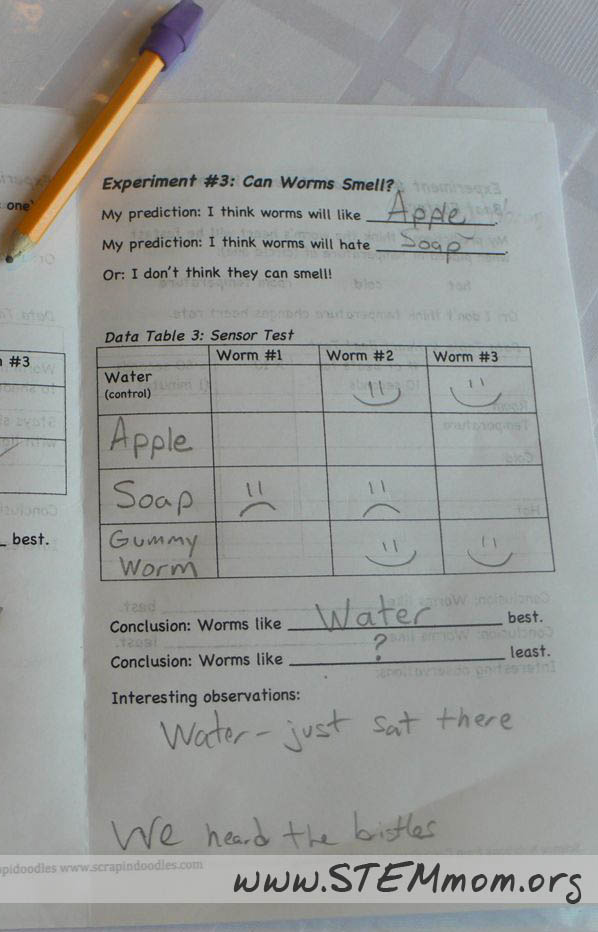 one'
Experiment #3: Can Worms Smell?
My prediction: I think worms will like Apple.
My prediction: I think worms will hate Soap.
Or: I don't think they can smell!
Data Table 3: Sensor Test
#3
Worm #1 Worm #2 Worm #3
Water
(control)
Apple
Soap
Gummy
Worm
best.
Conclusion: Worms like Water best.
Conclusion: Worms like ? least.
Interesting observations:
Water - just sat there
We heard the bistles
pidoodles www.scrapindoodles.com
www.STEMmom.org